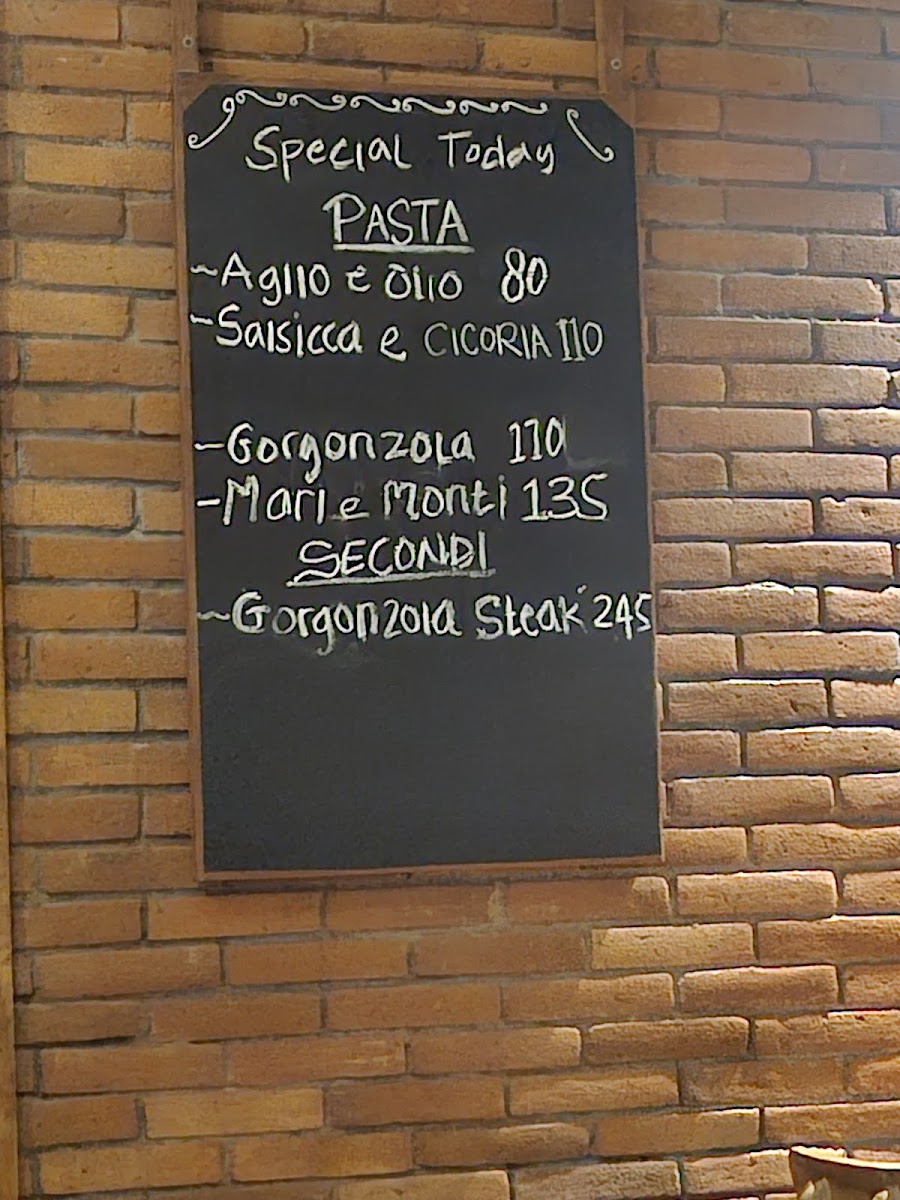 Special Today
PASTA
~Aglio e olio 80
~Salsicca e CICORIA 110
-Gorgonzola 110
-Mari e Monti 135
SECONDI
~Gorgonzola Steak 245